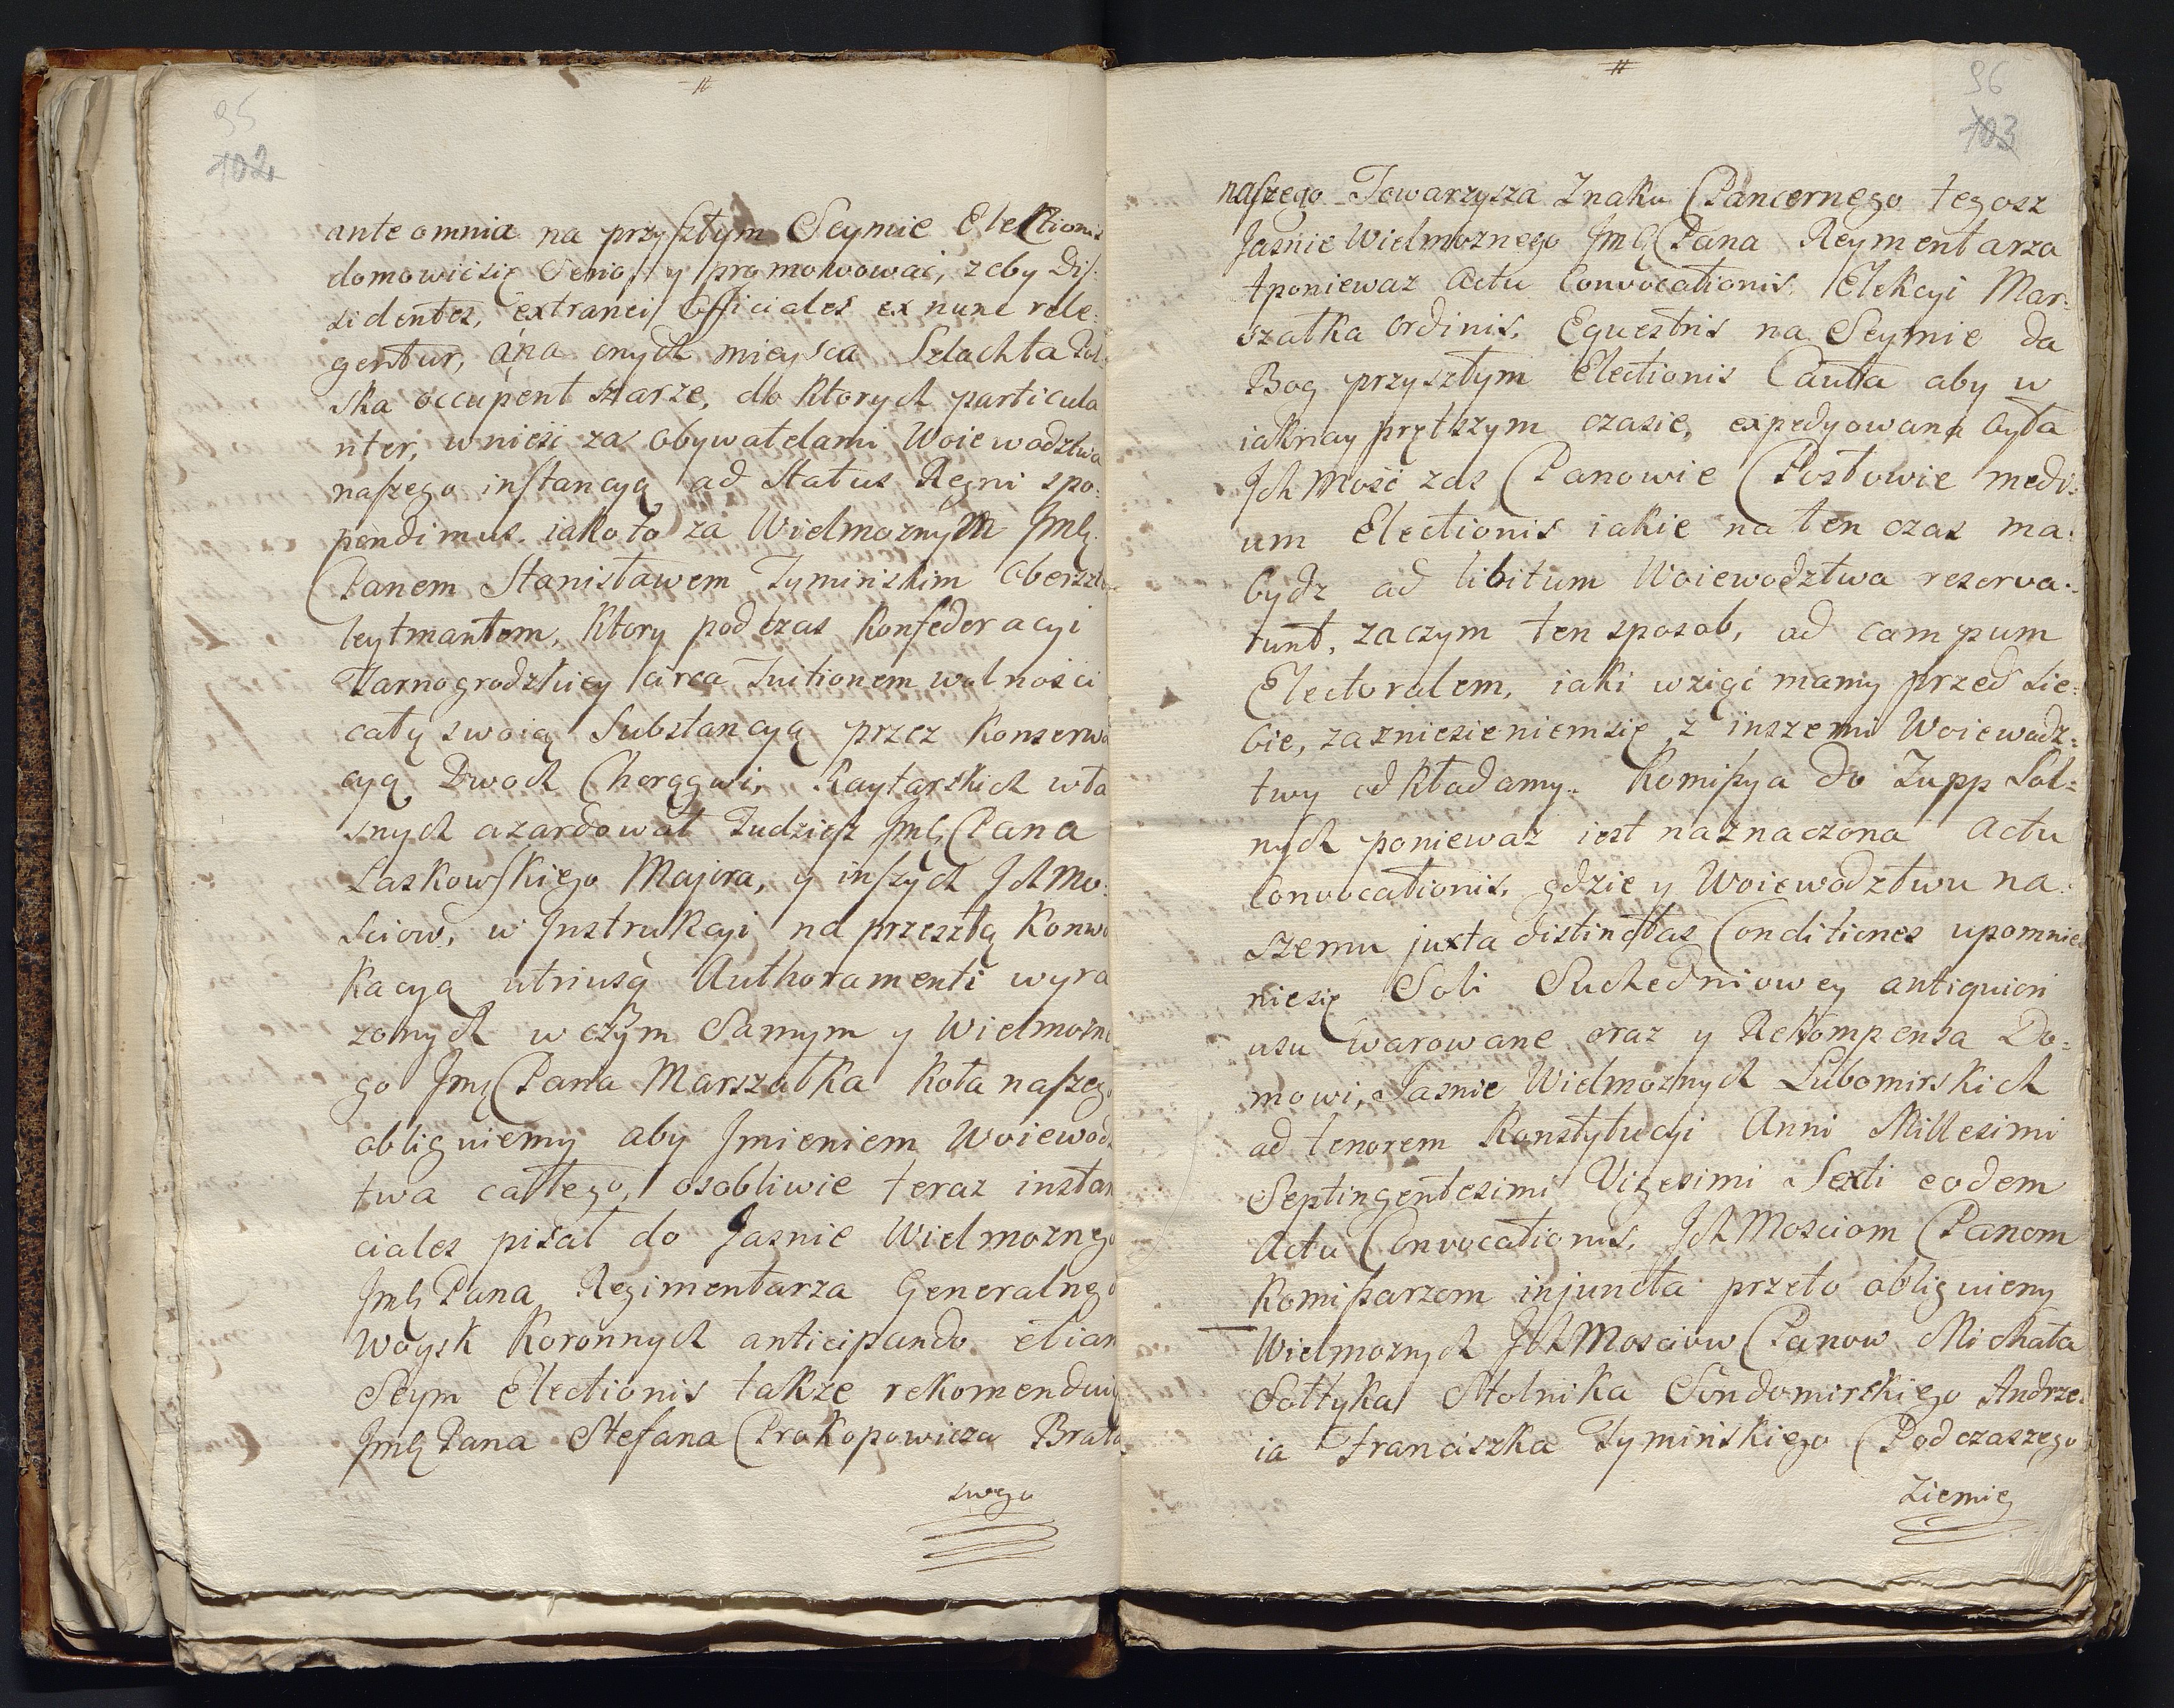 95
102
ante omnia na przyszłym Seymie Electionis
domowić się Serio, y promowować, zeby Dis:
sidentes, extranei Officiales ex nunc rele:
gentur, á ná onych mieysca Szlachta Pol:
ska occupent szarze, do ktorych particula
riter, wnieść za obywatelami Woiewodztwa
naszego instancyą ad Status Regni spo:
pendimus. iako to za Wielmoznym Jmć
Panem Stanisławem Tyminskim Obersztem
leytmantem, ktory pod czas Konfederacyi
Tarnogrodzkiey circa Tuitionem wolnosci
całą swoią Substancyą przez Konserwa
cyą Dwoch Chorągwi, Raytarskich wła
snych azardował Tudziesz Jmć Pana
Laskowskiego Majora, y inszych Ich Mo:
sciow, w Instrukcyi na przeszłą Konwo
kacyą utriusq Authoramenti wyra
zonych w czym Samym y Wielmozne
go Jmć Pana Marszałka Koła naszego
obliguiemy aby Imieniem Woiewodz
twa całego, osobliwie teraz instan
ciales pisał do Jasnie Wielmoznego
Jmć Pana Regimentarza Generalnego
Woysk Koronnych anticipando etiam
Seym Electionis takze rekomenduią
Jmć Pana Stefana Prokopowicza Brata
swego
96
103
naszego Towarzysza Znaku Pancernego tegosz
Jasnie Wielmoznego Jmć Pana Reymentarza
A poniewaz Actu Convocationis, Elekcyi Mar:
szałka Ordinis, Equestris na Seymie da
Bog przyszłym Electionis Cauta aby w
iaknay prętszym czasie, expedyowana była
Ich Mość zas Panowie Posłowie medi:
um Electionis iakie na ten czas ma:
bydz ad libitum Woiewodztwa reserva:
runt, zaczym ten sposob, ad campum
Electoralem, iaki wziąć mamy przed sie:
bie, za zniesieniem się z inszemi Woiewodz:
twy odkładamy. Komissya do Zupp Sol:
nych poniewaz iest naznaczona Actu
Convocationis, gdzie y Woiewodztwu na:
szemu juxta distinctas Conditiones upomnie
nie się Soli Suchedniowey antiquiori
usu warowane oraz y Rekompensa Do:
mowi, Jasnie Wielmoznych Lubomirskich
ad tenorem Konstytucyi Anni Millesimi
Septingentesimi Vigesimi Sexti eodem
Actu Convocationis, Ich Mosciom Panom
Komissarzom injuncta przeto obliguiemy
Wielmoznych Ich Mosciow Panow Michała
Sołtyka Stolnika Sendomirskiego Andrze:
ia Franciszka Tyminskiego Podczaszego
Ziemię